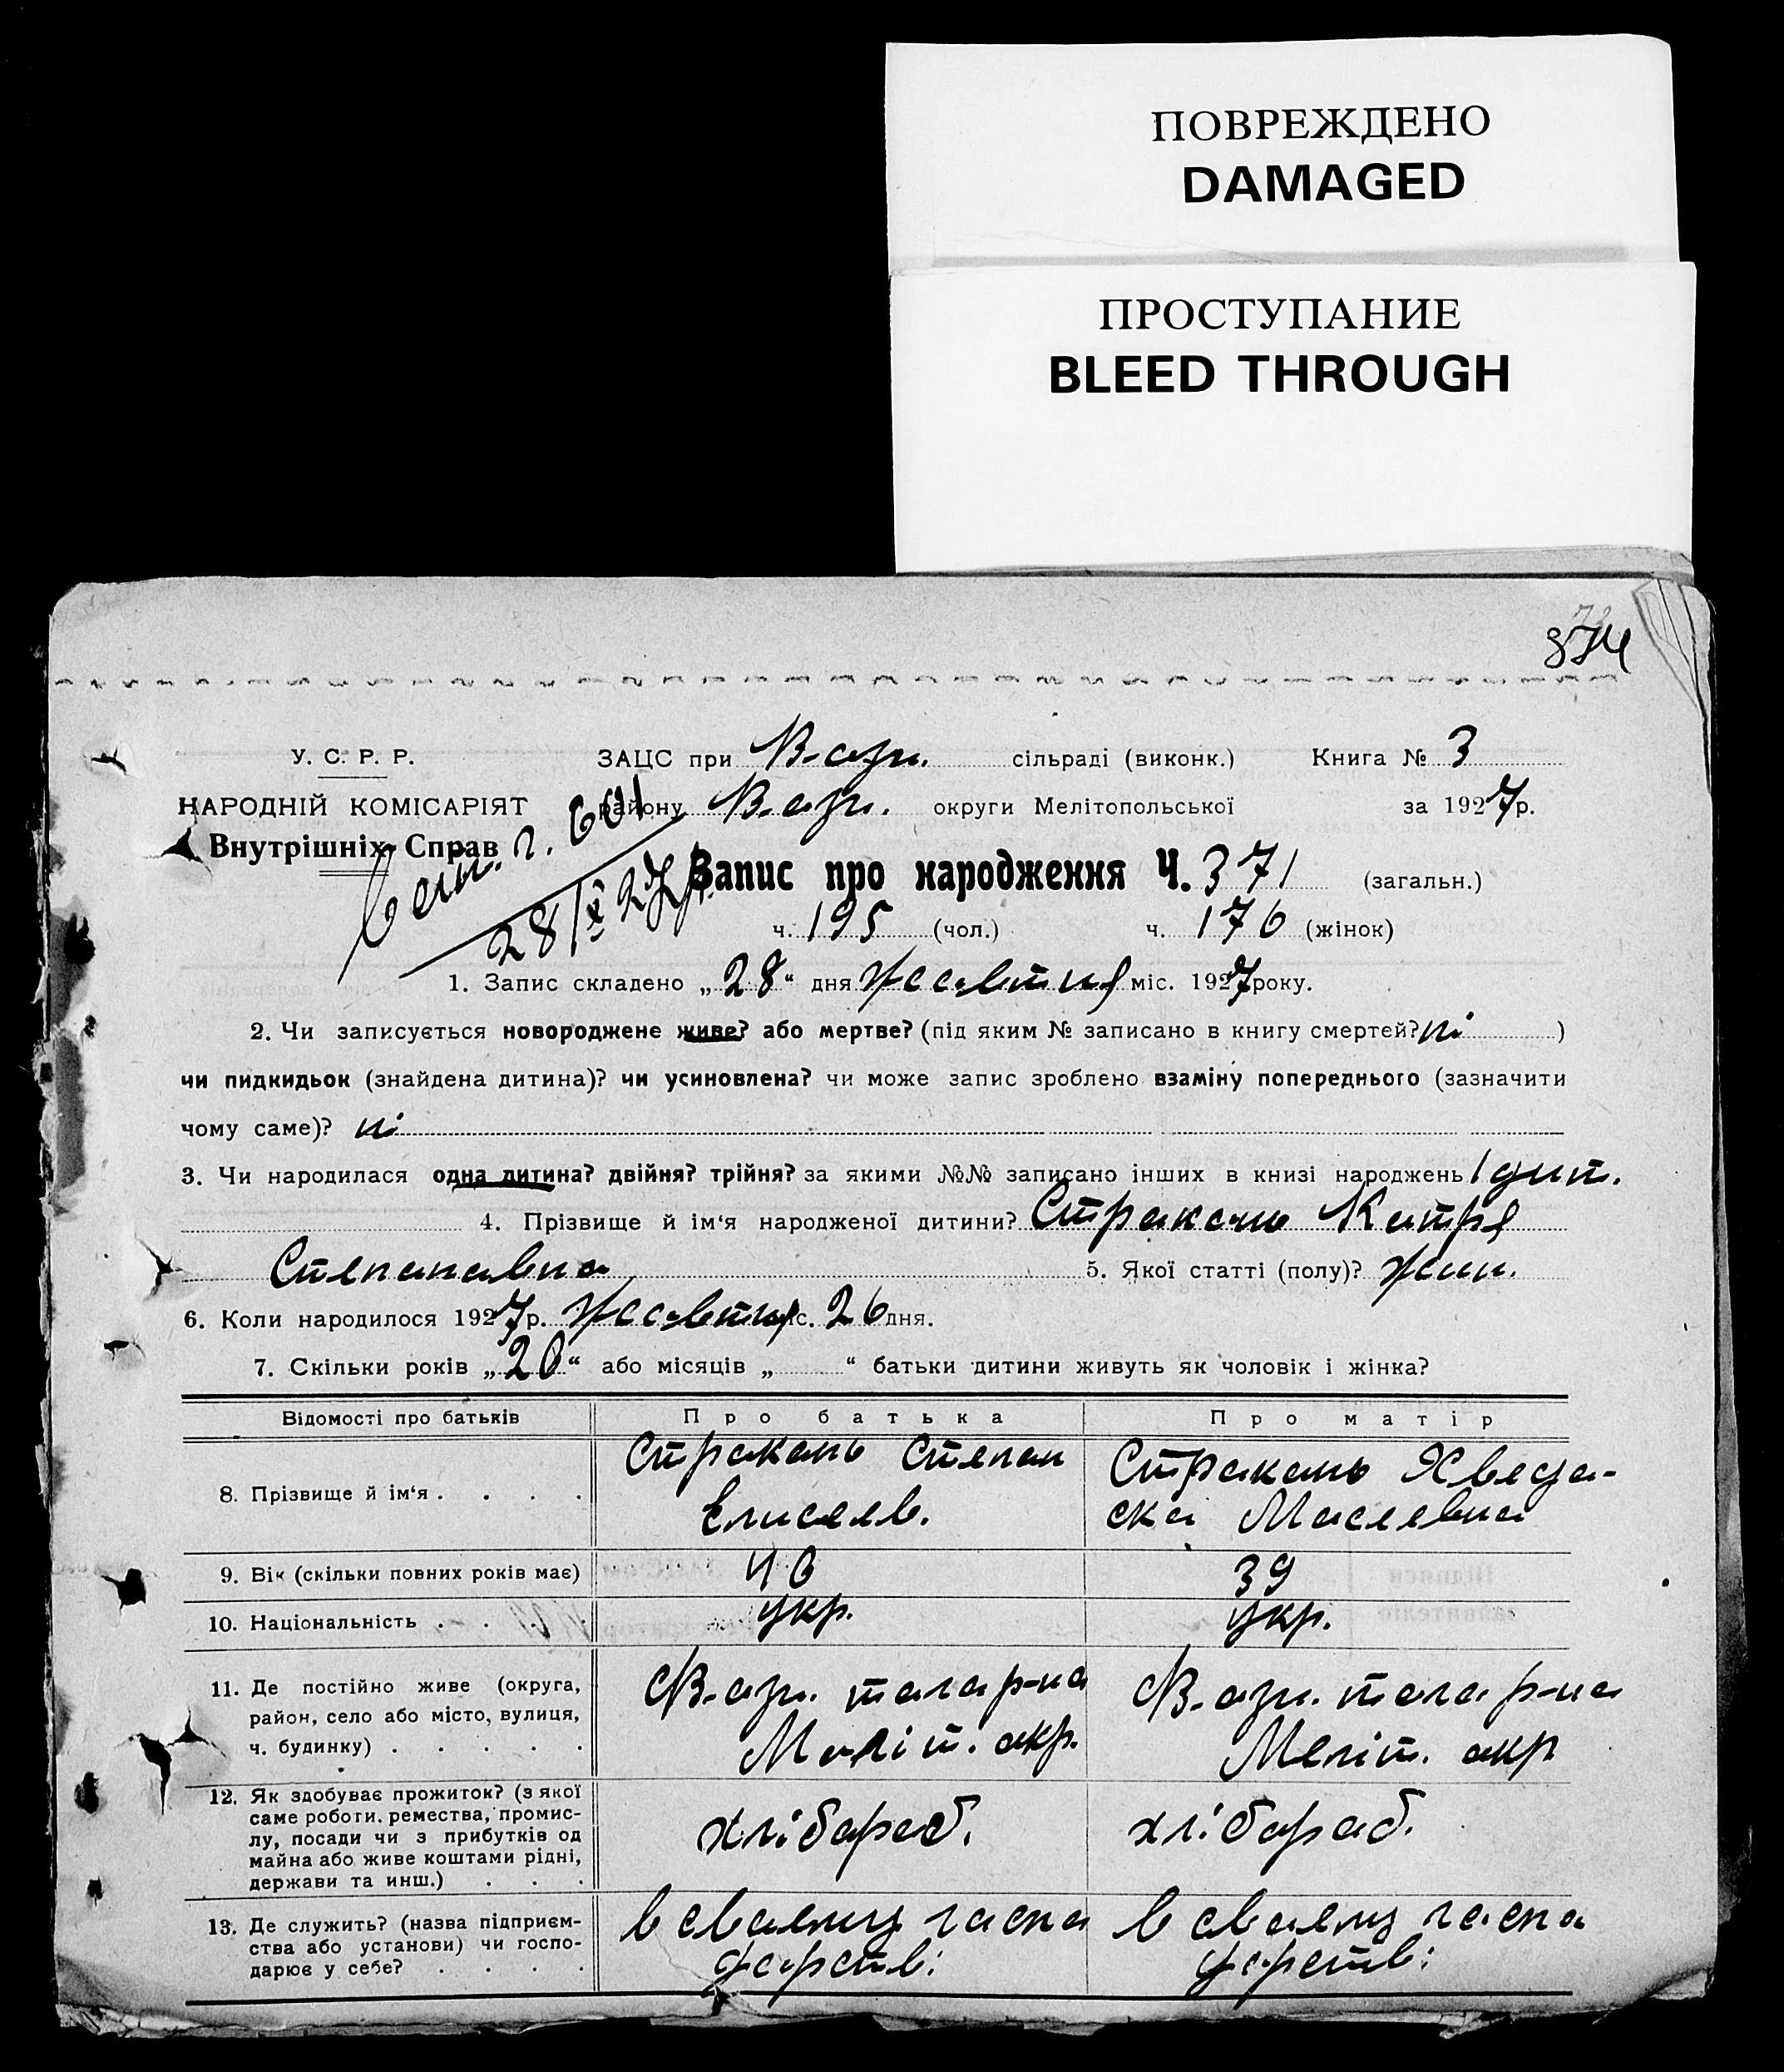 ПОВРЕЖДЕНО
DAMAGED
ПРОСТУПАНИЕ
BLEED THROUGH
874
У. С. Р. Р.
ЗАЦС при В-озн. сільраді (виконк.) Книга № 3
НАРОДНІЙ КОМІСАРІЯТ
району В-озн. округи Мелітопольської за 1927р.
Внутрішніх Справ
601
28/X 27
Запис про народження Ч. 371 (загальн.)
ч. 195 (чол.) ч. 176 (жінок)
1. Запис складено „28“ дня жовтня міс. 1927 року.
2. Чи записується новороджене живе? або мертве? (під яким № записано в книгу смертей? ні )
чи пидкидьок (знайдена дитина)? чи усиновлена? чи може запис зроблено взаміну попереднього (зазначити
чому саме)? ні
3. Чи народилася одна дитина? двійня? трійня? за якими №№ записано інших в книзі народжень 1 дит.
4. Прізвище й ім‘я народженої дитини? Стракань Катря
Степановна 5. Якої статті (полу)? жін.
6. Коли народилося 1927р. жовтня с. 26 дня.
7. Скільки років „20“ або місяців „ “ батьки дитини живуть як чоловік і жінка?
Відомості про батьків Про батька Про матір
8. Прізвище й ім‘я . . . .
Стракань Степан
Елисеев.
Стракань Хведо-
ска Мосеевна
9. Вік (скільки повних років має) 40 39
10. Національність . . . . укр. укр.
11. Де постійно живе (округа,
район, село або місто, вулиця,
ч. будинку) . . . . .
В-озн. того р-на
Меліт. окр.
В-озн. того р-на
Меліт. окр
12. Як здобуває прожиток? (з якої
саме роботи, ремества, промис-
лу, посади чи з прибутків од
майна або живе коштами рідні,
держави та инш.) . . .
хлібороб.
хлібороб.
13. Де служить? (назва підприєм-
ства або установи) чи госпо-
дарює у себе? . . . .
в своему госпо
дарстві
в своему госпо
дарстві